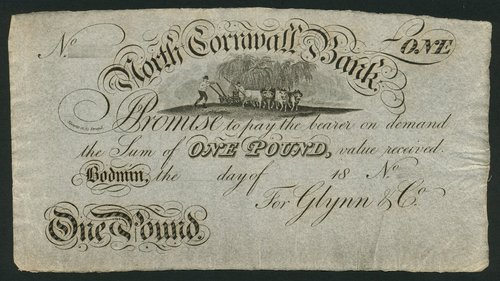 No
ONE
North Cornwall Bank.
I Promise to pay the bearer on demand
the Sum of ONE POUND, value received.
Bodmin, the day of 18 No
For Glynn & Co
One Pound.